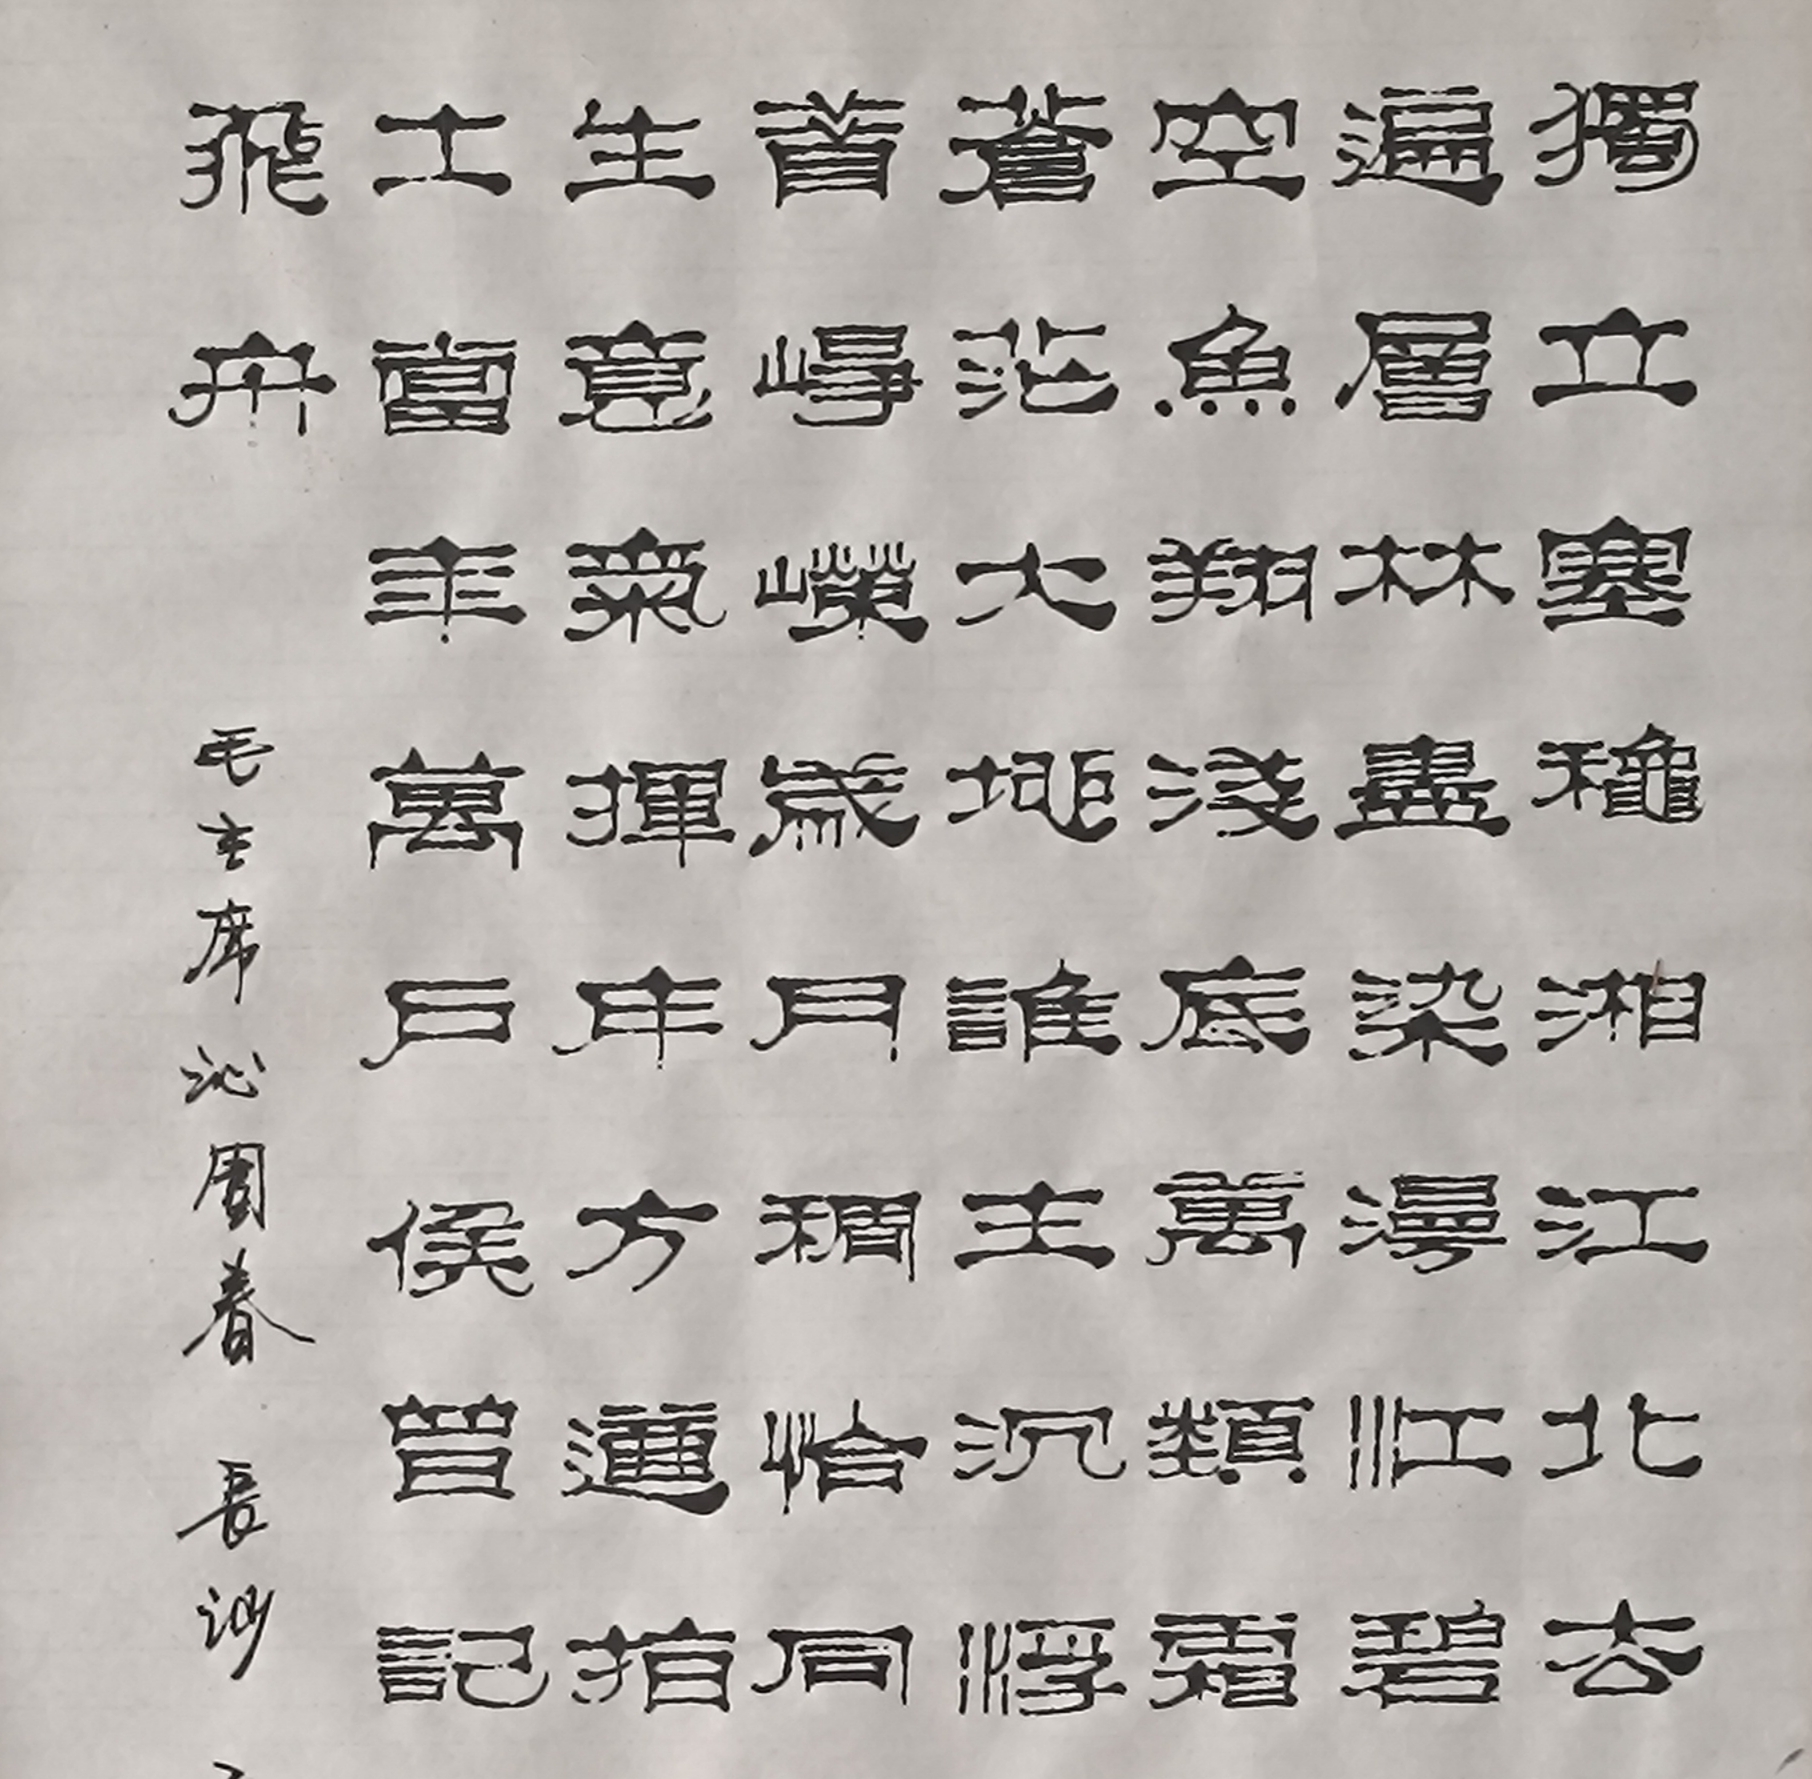 獨立寒穐湘江北去
遍層林盡染漫江碧
空魚翔淺底萬類霜
蒼茫大地誰主沉浮
首崢嶸歲月稠恰同
生意氣揮斥方遒指
土當年萬戶侯曾記
飛舟
毛主席沁園春 長沙